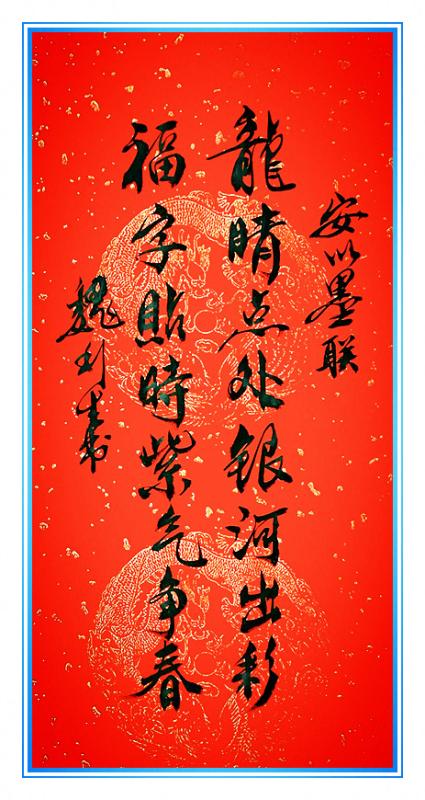 安以墨联
龍睛点处银河出彩
福字貼時紫气争春
魏